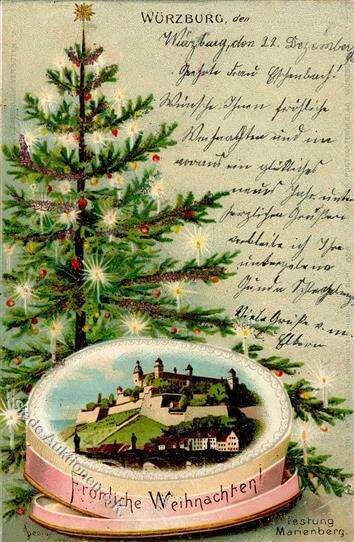 WÜRZBURG, den
Würzburg, den 22. Dezember
Geehrte Frau Eschenbach!
Wünsche Ihnen fröhliche
Weihnachten und im
voraus ein glückliches
neues Jahr unter
herzlichen Grüßen
verbleibe ich Ihre
untergebene
Gunda
Viele Grüße v. m.
Eltern
Fröhliche Weihnachten!
Festung
Marienberg.